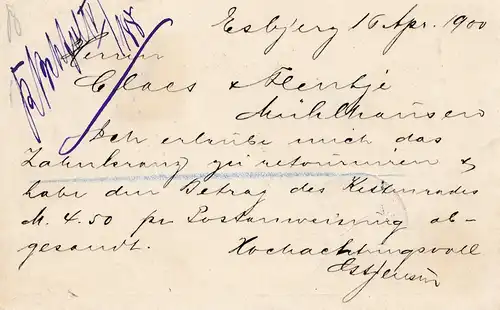 Esbjerg 16 Apr. 1900
Herrn
Claes & Flentje
Mühlhausen
Ich erlaube mich das
Zahnkranz zu retournieren &
habe den Betrag des Kettenrades
M. 4.50 pr Postanweisung ab-
gesandt.
Hochachtungsvoll